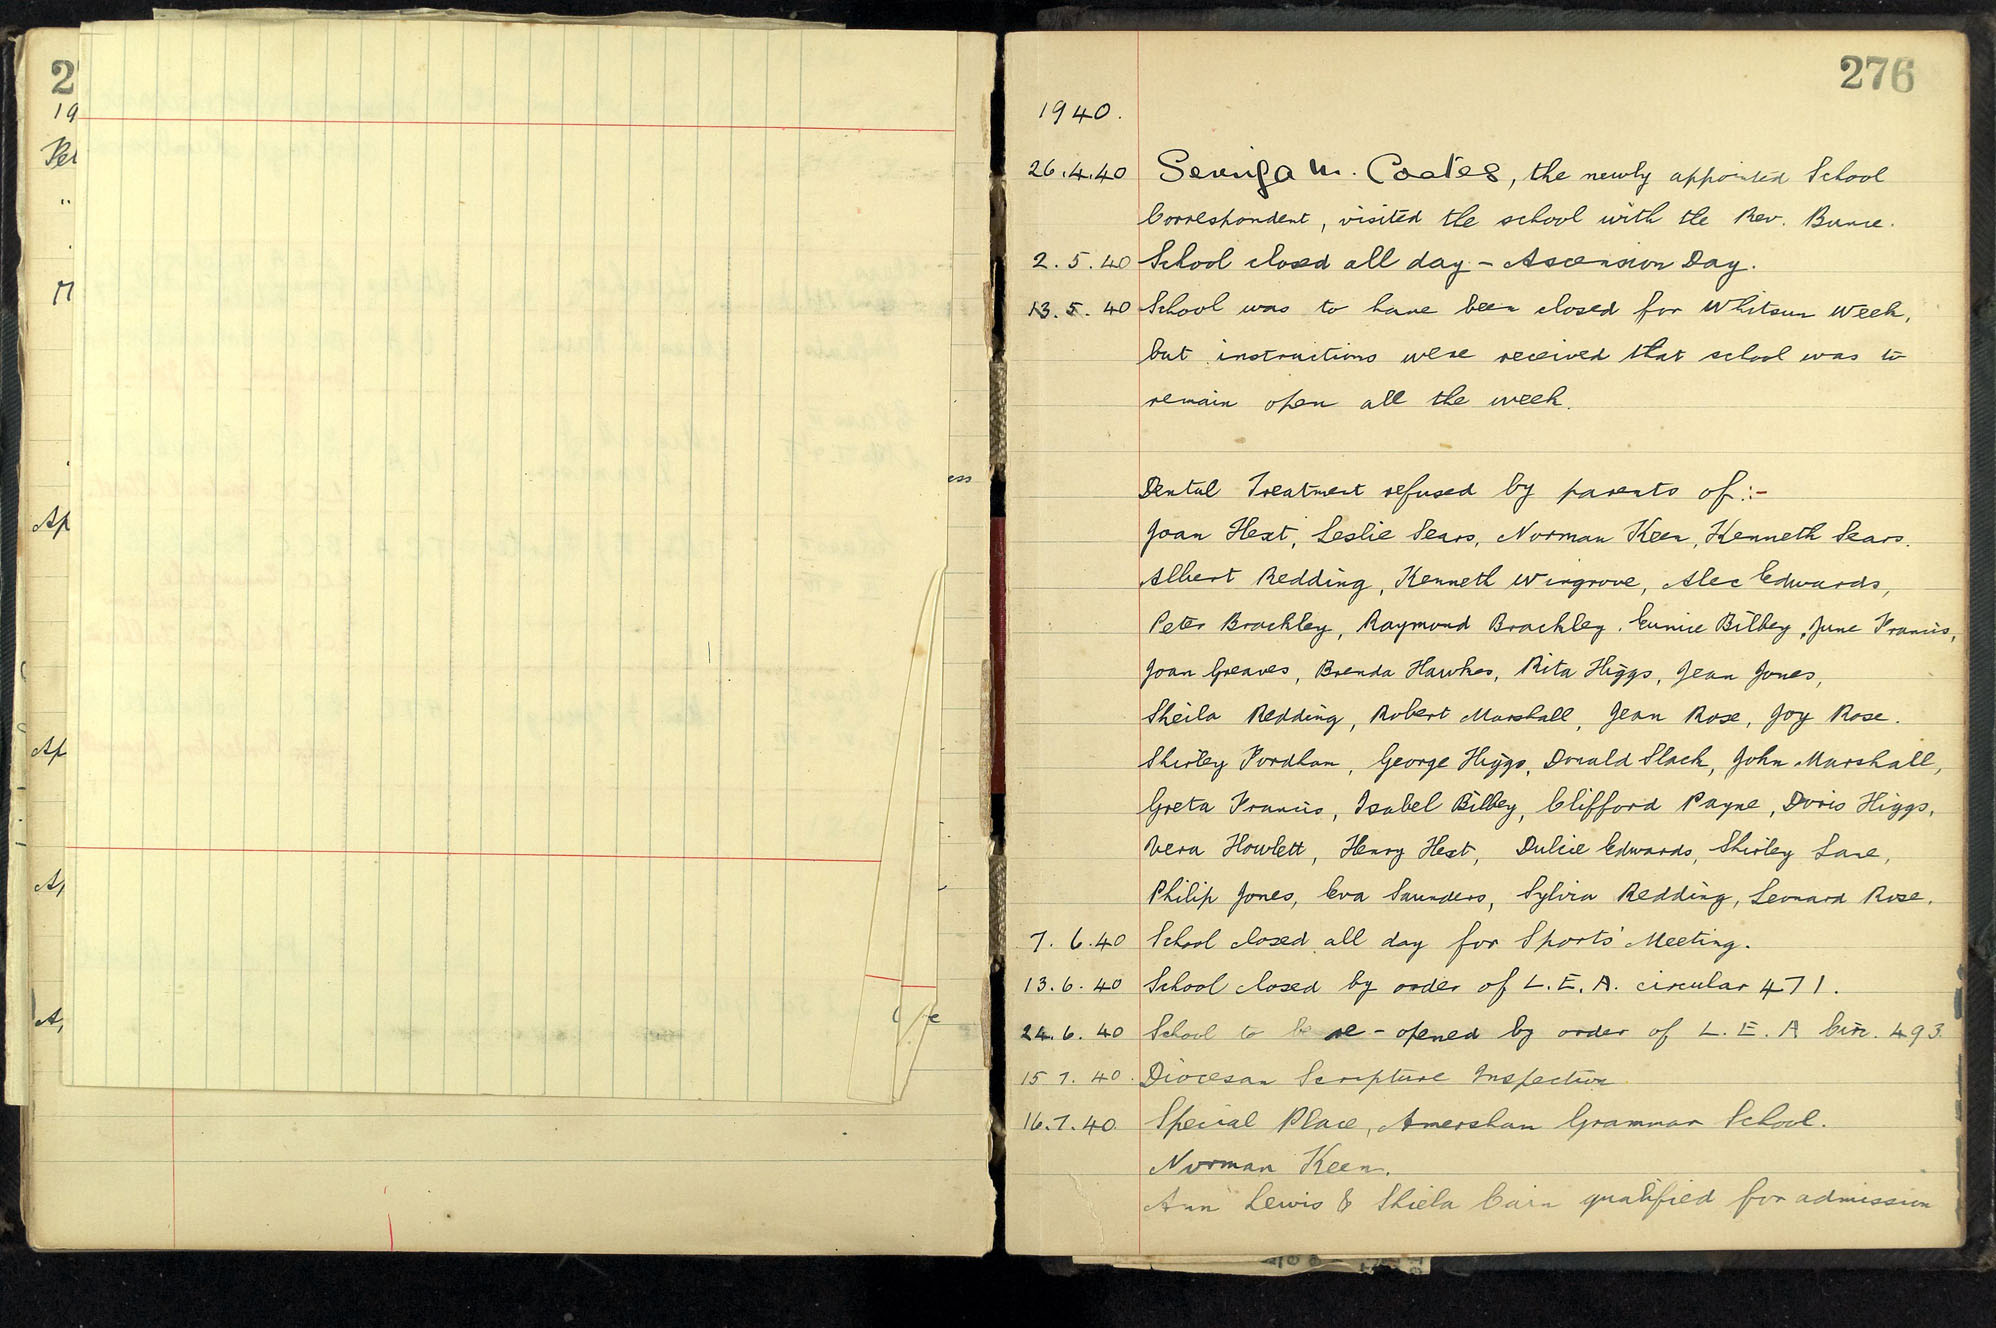 2
19
Ap
Ap
ess
276
1940.
26.4.40 M. Coates, the newly appointed School
Correspondent, visited the school with the Rev. Bunce.
2.5.40 School closed all day – Ascension Day.
13.5.40 School was to have been closed for Whitsun Week,
but instructions were received that school was to
remain open all the week.
Dental Treatment refused by parents of:-
Joan Hext, Leslie Sears, Norman Keen, Kenneth Sears.
Albert Redding, Kenneth Wingrove, Alec Edwards,
Peter Brackley, Raymond Brackley. Eunice Bilbey, June Francis,
Joan Greaves, Brenda Hawkes, Rita Higgs, Jean Jones,
Sheila Redding, Robert Marshall, Jean Rose, Joy Rose.
Shirley Fordham, George Higgs, Donald Slack, John Marshall,
Greta Francis, Isabel Bilbey, Clifford Payne, Doris Higgs,
Vera Howlett, Henry Hext, Dulcie Edwards, Shirley Lane,
Philip Jones, Eva Saunders, Sylvia Redding, Leonard Rose.
7.6.40 School closed all day for Sports' Meeting.
13.6.40 School closed by order of L.E.A. circular 471.
24.6.40 School to be re-opened by order of L.E.A Circ. 493.
15 7.40. Diocesan Scripture Inspection
16.7.40. Special Place, Amersham Grammar School.
Norman Keen.
Ann Lewis & Shiela Cain qualified for admission